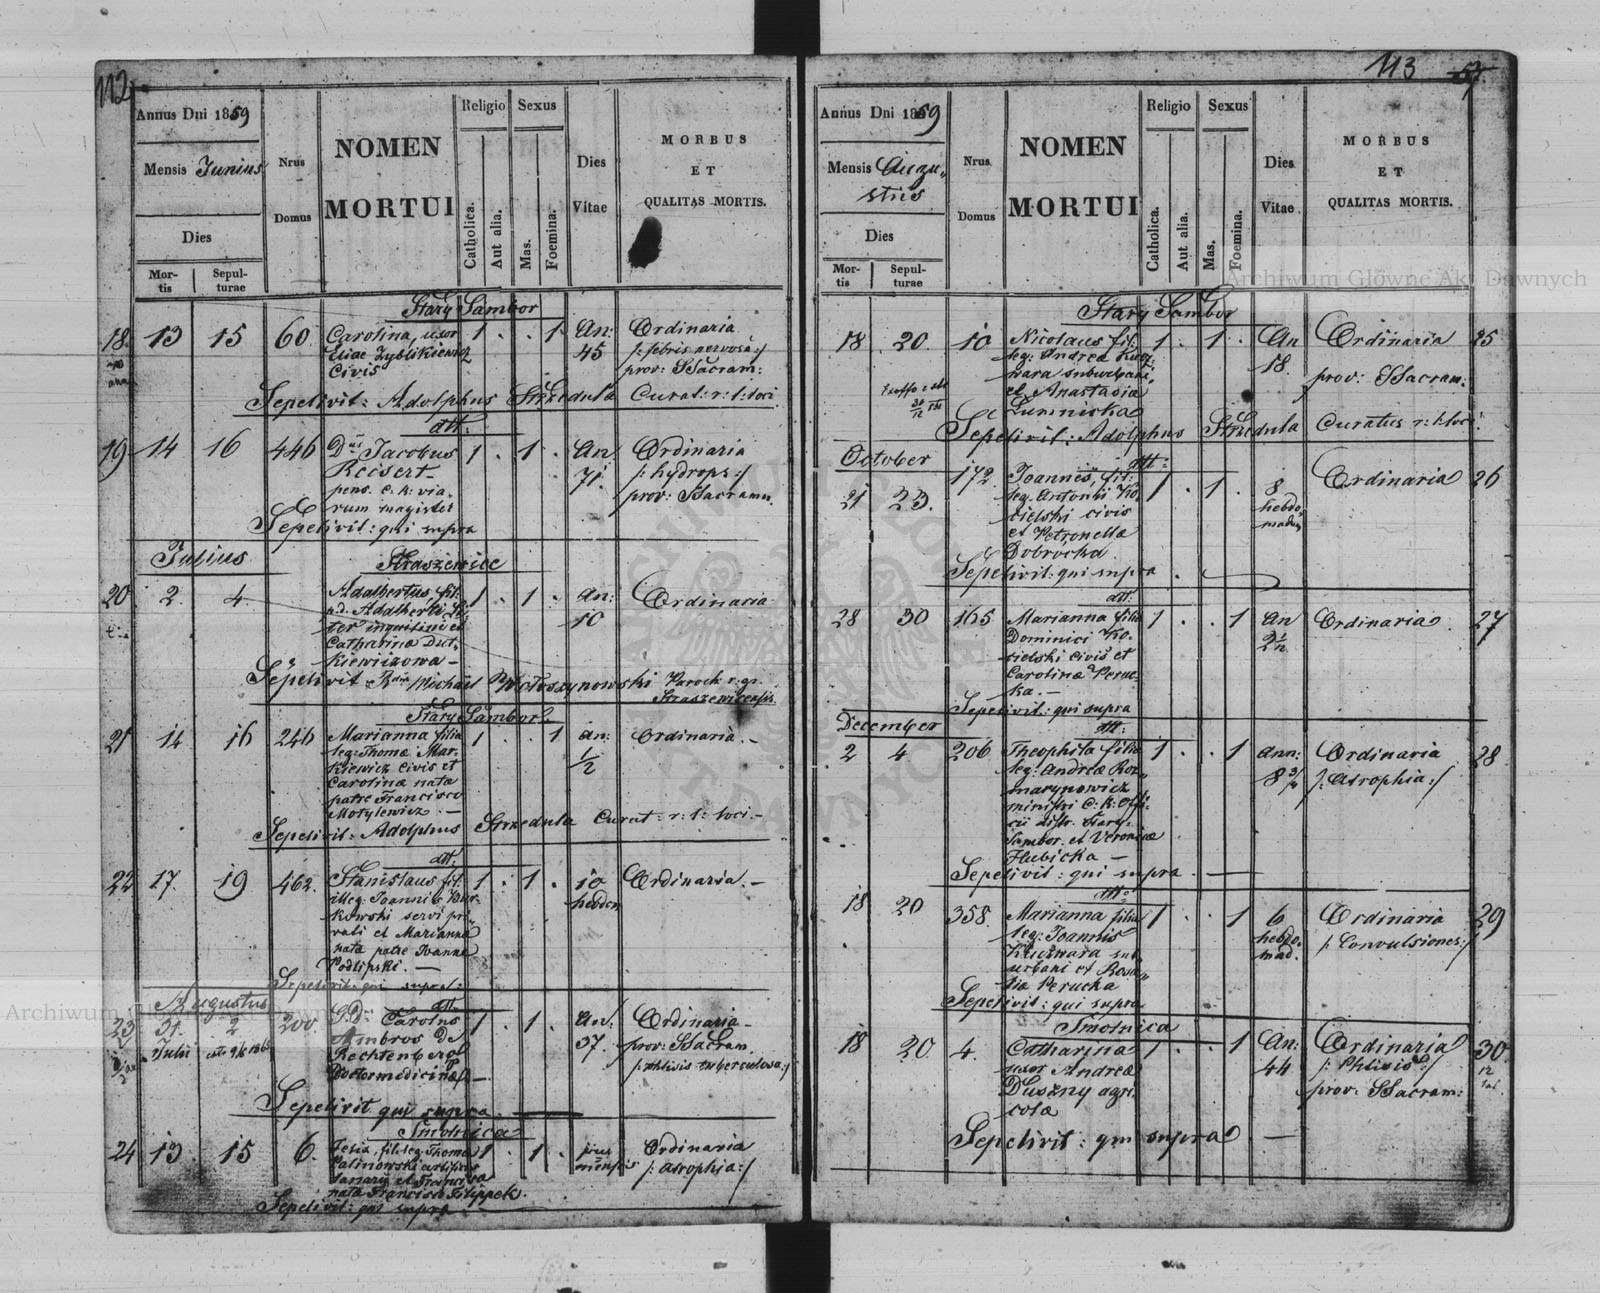 112
Annus Dni 1859
Mensis Junius
Dies
Mortis
Sepulturae
Nrus Domus
NOMEN MORTUI
Religio
Catholica.
Aut alia.
Sexus
Mas.
Foemina.
Dies Vitae
MORBUS
ET
QUALITAS MORTIS.
Stary Sambor
18. 13 15 60. Carolina, uxor 1 . . 1. An: Ordinaria
Eliae Zyblikiewicz 45 /: febris nervosa :/
Civis prov: SSacram:
Sepelivit: Adolphus Strzedula Curat: r: l: loci
dtt:
19 14 16 446 Dnus Jacobus 1 . 1 . An Ordinaria
Reisert 71 /: hydrops :/
pens. c. k: via- prov: SSacram.
rum magister
Sepelivit: qui supra
Julius
Straszewice
20 2 4 Adalbertus, fil: 1 . 1 . An: Ordinaria
p.d. Adalberti 10
ter inquilini et
Catharina Dut-
kiewiczowa –
Sepelivit Rdus Michael Wołoszynowski Paroch r. gr.
Straszewicensis
Stary Sambor
21 14 16 246 Marianna filia 1 . . 1 An: Ordinaria. –
leg: Thomae Mar- 1/2
kiewicz Civis et
Carolinae nata
patre Francisco
Motylewicz. –
Sepelivit: Adolphus Strzedula Curat: r: l: loci. –
dtt:
22 17. 19 462. Stanislaus fil: 1 . 1 . 10 Ordinaria. –
illeg: Joannis hebdom
kowski servi pri-
vati et Marianna
nata patre Joanne
Podlipski. –
Sepelivit: qui supra:
Augustus
dtt
23 31. 2 200. Carolus 1 . 1 . An: Ordinaria –
Julii Ambros De 37. prov: SSacram
Rechtenberg /: phtisis tuberculosa :/
Doctor medicinae –
Sepelivit qui supra. –
Smolnica
24 13 15 6. Felix, fil. leg. Thomae 1 . 1 . Ordinaria
Palinowski mensis /: Atrophia :/
et Francisca
nata Francisco Filippek.
Sepelivit: qui supra
113
57
Annus Dni 1859
Mensis Augustus
Dies
Mortis
Sepulturae
Nrus. Domus
NOMEN MORTUI
Religio
Catholica.
Aut alia.
Sexus
Mas.
Foemina.
Dies Vitae
MORBUS
ET
QUALITAS MORTIS.
Stary Sambor
18 20. 10 Nicolaus fil: 1 . 1 . An Ordinaria 25
leg: Andrea Kucz- 18.
mara suburbani, prov: SSacram:
et Anastasia
Zumnicka
Sepelivit: Adolphus Strzedula Curatus r: l: loci.
October
dtt:
21 23. 172. Joannes, fil: 1 . 1 . 8 Ordinaria 26
leg. Antonii Ko- hebdo-
cielski civis madum
et Petronella
Dobrocka.
Sepelivit: qui supra . –
dtt:
28 30 165 Marianna filia 1 . . 1 An Ordinaria. 27
Dominici Ko-
cielski civis et
Carolinae Peruc-
ka. –
Sepelivit: qui supra
December
dtt:
2 4 206 Theophila filia 1 . . 1 Ann: Ordinaria 28
leg: Andreae Roz- /: Atrophia :/
marynowicz
ministri C: K: Offi-
cii distr. Stary-
Sambor. et Veronicae
Hubicka –
Sepelivit: qui supra. –
dtt:
18 20 358. Marianna filia 1 . . 1 6 Ordinaria 29
leg: Joannis hebdo- /: Convulsiones :/
Kuczmara sub- mad.
urbani et Rosa-
lia Perucka
Sepelivit: qui supra
Smolnica
18 20. 4. Catharina 1 . . 1 An: Ordinaria 30
uxor Andreae 44 /: Phtisis :/
Duszny agri- prov: SSacram:
colae
Sepelivit: qui supra. –
Archiwum Główne Akt Dawnych